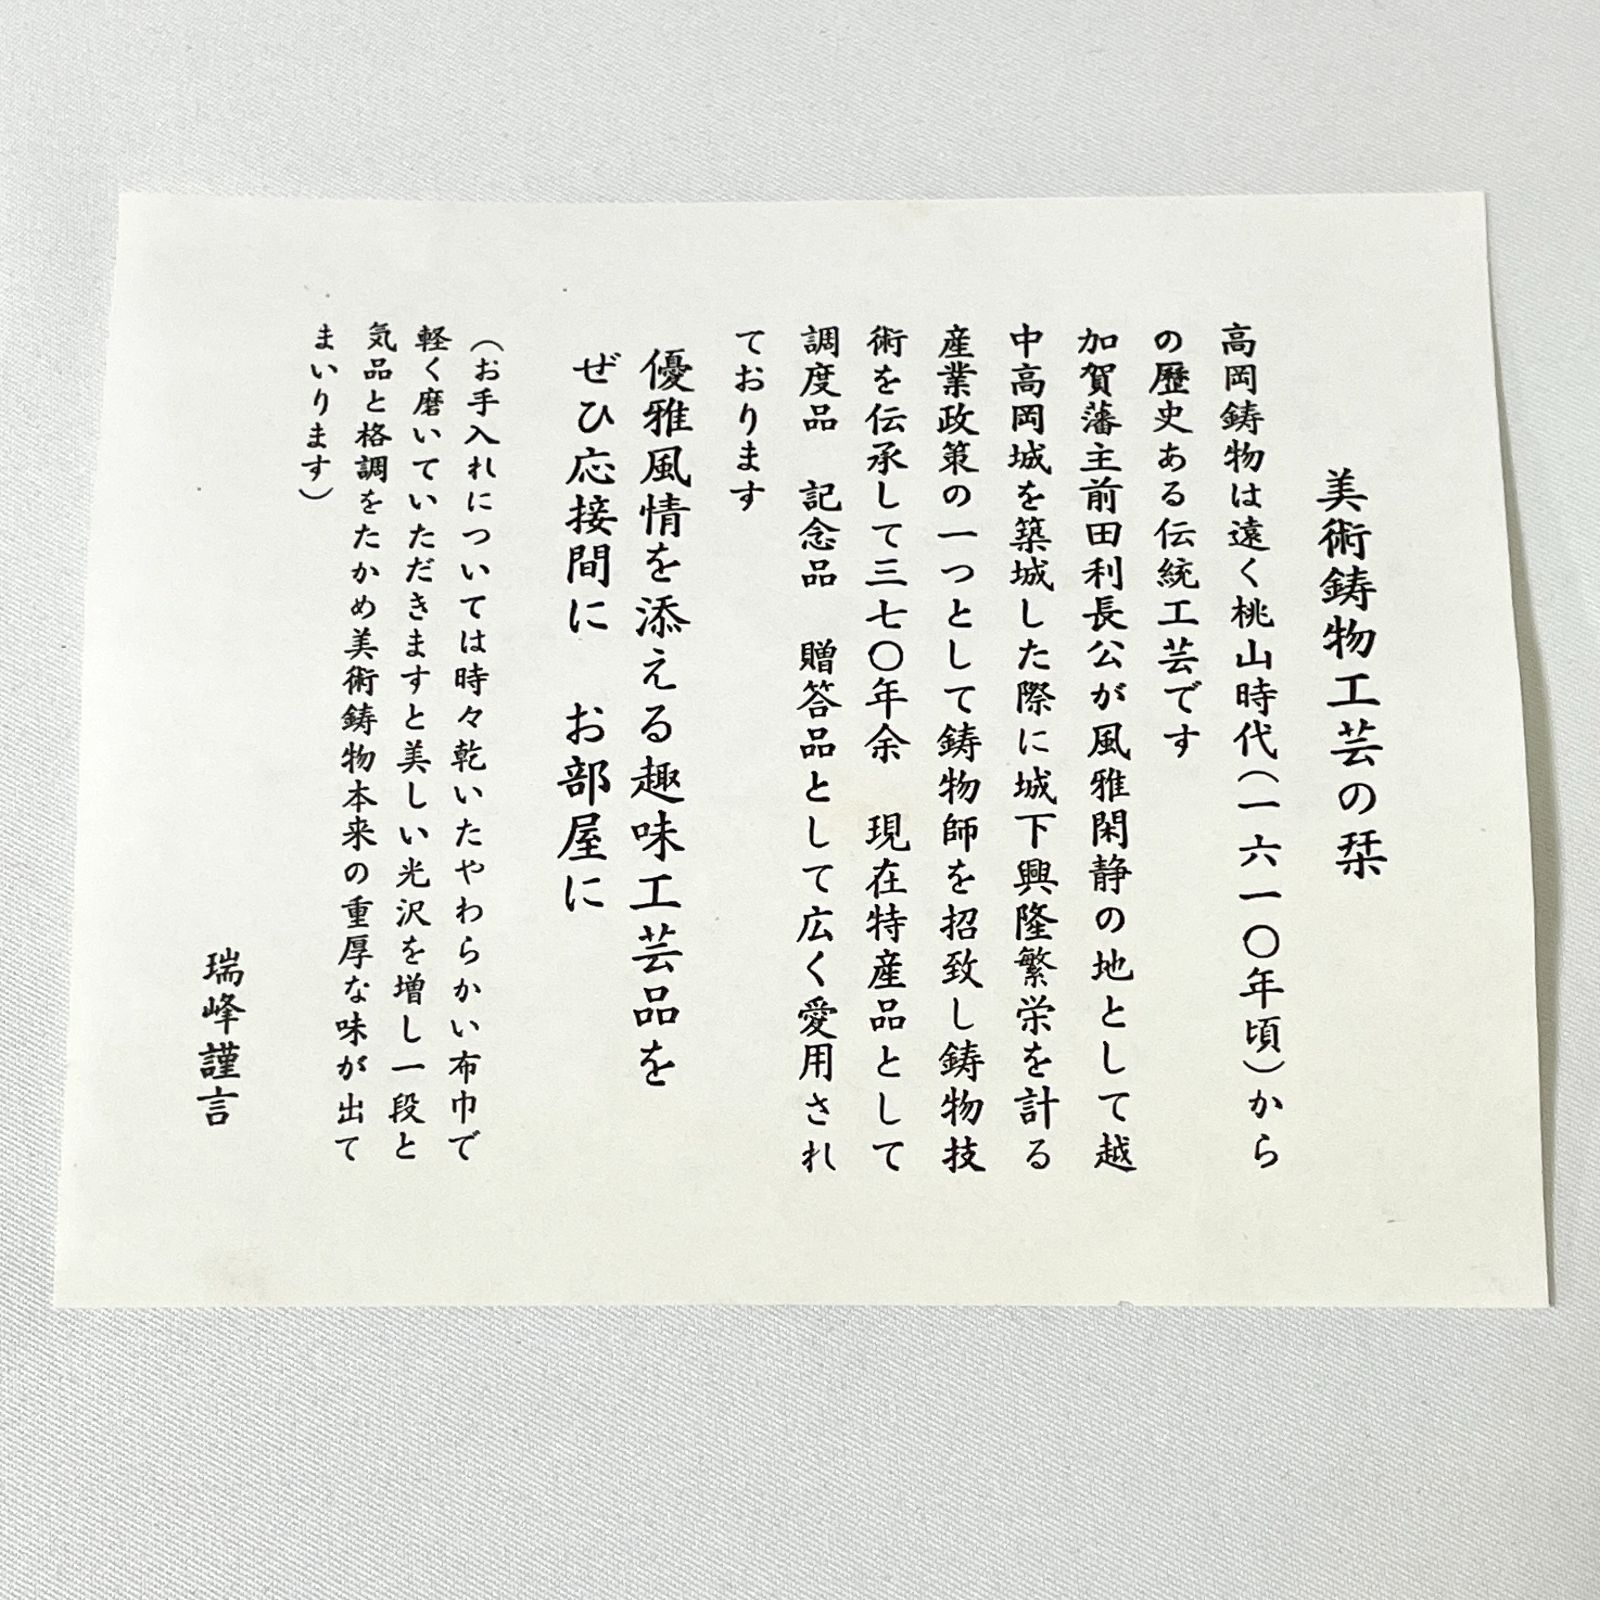 美術鋳物工芸の栞
高岡鋳物は遠く桃山時代(一六一〇年頃)から
の歴史ある伝統工芸です
加賀藩主前田利長公が風雅閑静の地として越
中高岡城を築城した際に城下興隆繁栄を計る
産業政策の一つとして鋳物師を招致し鋳物技
術を伝承して三七〇年余　現在特産品として
調度品　記念品　贈答品として広く愛用され
ております
優雅風情を添える趣味工芸品を
ぜひ応接間に　お部屋に
(お手入れについては時々乾いたやわらかい布巾で
軽く磨いていただきますと美しい光沢を増し一段と
気品と格調をたかめ美術鋳物本来の重厚な味が出て
まいります)
瑞峰謹言